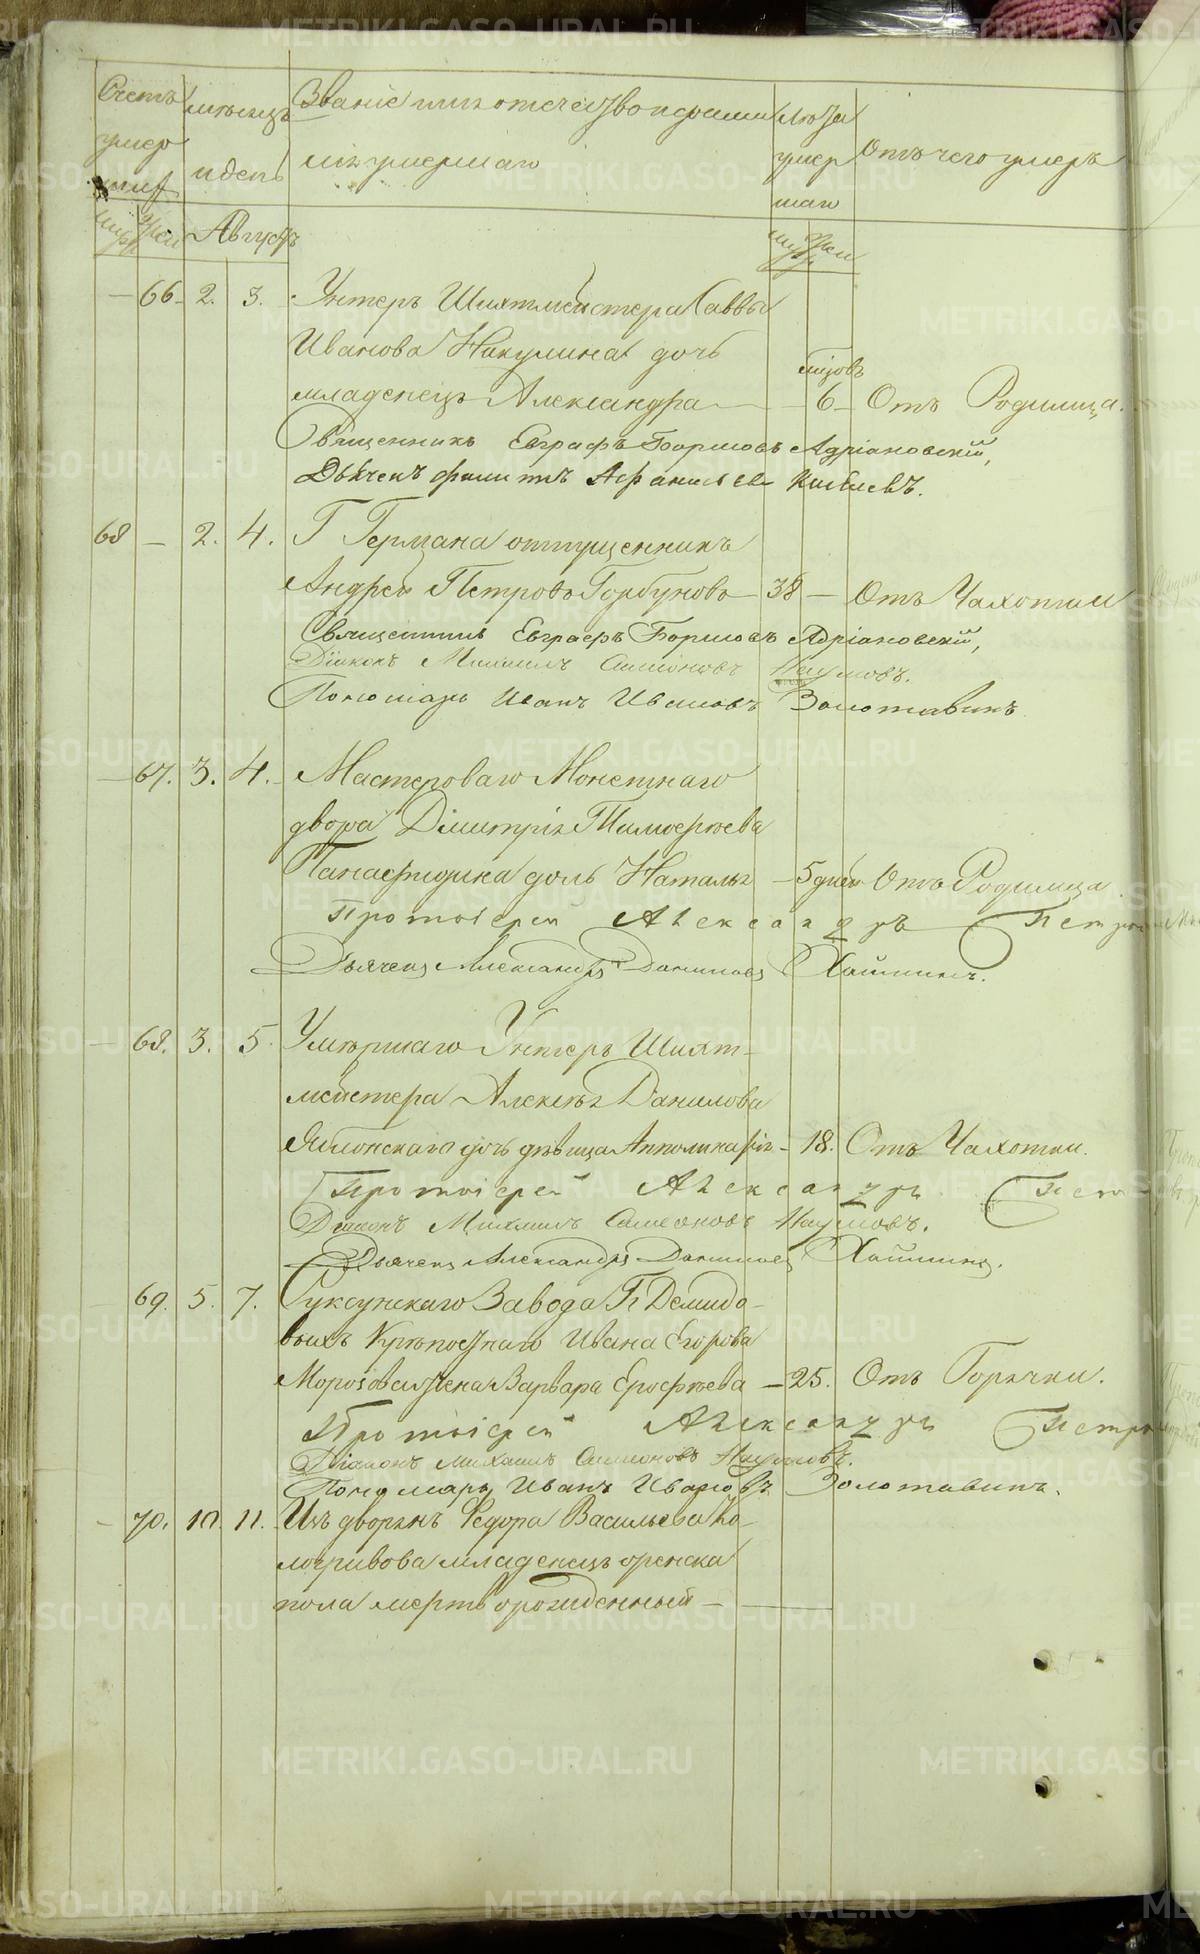 Счетъ умершихъ
месяцъ и день
Званіе имя отечество и фамилія умершаго
Лѣта умершаго
Отъ чего умеръ
муж. жен.
Августъ
муж. жен.
— 66. 2. 3. Унтеръ Шихтмейстера Саввы
Иванова Накулина дочь
младенецъ Александра — 6 — Отъ Родимца.
Священникъ Евграфъ Борисовъ Адріановскій,
68 — 2. 4. Г Германа отпущенникъ
Андрей Петровъ Горбуновъ — 38 — Отъ Чахотки
Священникъ Евграфъ Борисовъ Адріановскій,
Діаконъ Михаилъ Симеоновъ Наумовъ.
Пономарь Иванъ Ивановъ Золотавинъ
— 67. 3. 4. Мастероваго Монетнаго
двора Димитрія Тимофеева
Панафидина дочь Наталья — 5 дней Отъ Родимца.
Протоіерей Александръ Петр
Дьячекъ Александръ Даниловъ
— 68. 3. 5. Умершаго Унтеръ Шихт-
мейстера Алексѣя Данилова
Яблонскаго дочь дѣвица Апполинарія — 18. Отъ Чахотки.
Протоіерей Александръ
Діаконъ Михаилъ Симеоновъ Наумовъ.
Дьячекъ Александръ Даниловъ
69. 5. 7. Суксунскаго Завода Гг Демидо-
выхъ Крѣпостнаго Ивана Егорова
Морозова жена Варвара Ерофѣева — 25. Отъ Горячки.
Протоіерей Александръ Петро
Діаконъ Михаилъ Симеоновъ Наумовъ.
Пономарь Иванъ Ивановъ Золотавинъ.
— 70. 10. 11. Изъ дворянъ Федора Васильева Ко-
логривова младенецъ женска
пола мертворожденный —
METRIKI.GASO-URAL.RU